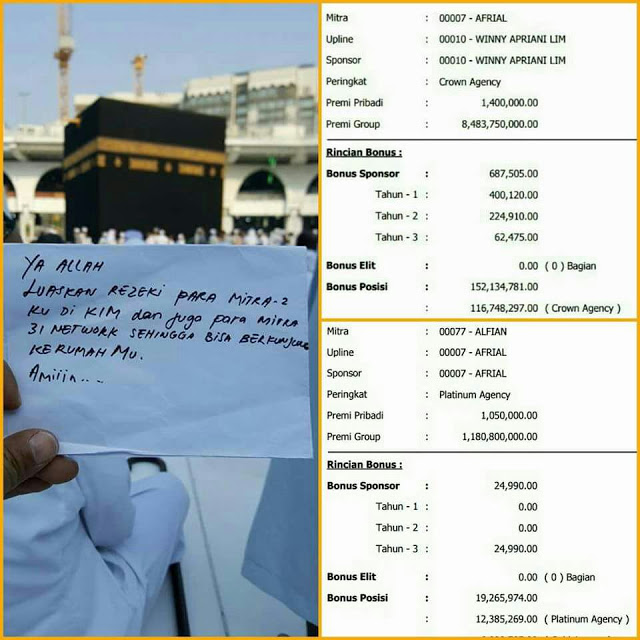 YA ALLAH
LUASKAN REZEKI PARA MITRA-2
KU DI KIM dan juga para MITRA
31 NETWORK SEHINGGA BISA BERKUNJUNG
KERUMAH MU.
Amiiin...
Mitra : 00007 - AFRIAL
Upline : 00010 - WINNY APRIANI LIM
Sponsor : 00010 - WINNY APRIANI LIM
Peringkat : Crown Agency
Premi Pribadi : 1,400,000.00
Premi Group : 8,483,750,000.00
Rincian Bonus :
Bonus Sponsor : 687,505.00
Tahun - 1 : 400,120.00
Tahun - 2 : 224,910.00
Tahun - 3 : 62,475.00
Bonus Elit : 0.00 ( 0 ) Bagian
Bonus Posisi : 152,134,781.00
: 116,748,297.00 ( Crown Agency )
Mitra : 00077 - ALFIAN
Upline : 00007 - AFRIAL
Sponsor : 00007 - AFRIAL
Peringkat : Platinum Agency
Premi Pribadi : 1,050,000.00
Premi Group : 1,180,800,000.00
Rincian Bonus :
Bonus Sponsor : 24,990.00
Tahun - 1 : 0.00
Tahun - 2 : 0.00
Tahun - 3 : 24,990.00
Bonus Elit : 0.00 ( 0 ) Bagian
Bonus Posisi : 19,265,974.00
: 12,385,269.00 ( Platinum Agency )